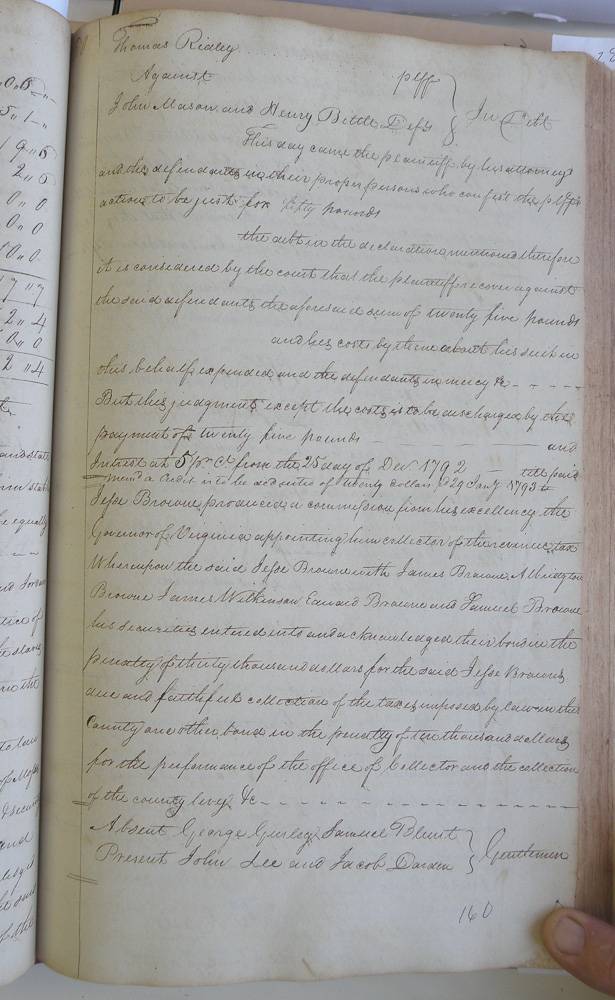 Thomas Ridley
Against plff
John Mason and Henry Bittle Defts } In Debt
This day came the plaintiff by his attorney
and the defendants in their proper persons who confest the plffs
action to be just for fifty pounds
the debt in the declaration mentioned therefore
it is considered by the court that the plaintiff recover against
the said defendants the aforesaid sum of twenty five pounds
and his costs by them about his suit in
this behalf expended and the defendants in mercy &c
But this judgment except the costs is to be discharged by the
payment of twenty five pounds and
Interest at 5 pr Ct from the 25 day of Decr 1792 till paid
a Credit is to be twenty dollars 29 Jany 1793
Jesse Browne produced a commission from his excellency the
Governor of Virginia appointing him collector of the revenue tax
Whereupon the said Jesse Browne with James Browne Albridgton
Browne James Wilkinson Edward Browne and Samuel Browne
his securities entered into and acknowledged their bond in the
penalty of thirty thousand dollars for the said Jesse Browns
due and faithful collection of the taxes imposed by law in this
County another bond in the penalty of ten thousand dollars
for the performance of the office of Collector and the collection
of the county levy &c
Absent George Gurley Samuel Blunt
Present John Lee and Jacob Darden } Gentlemen
160